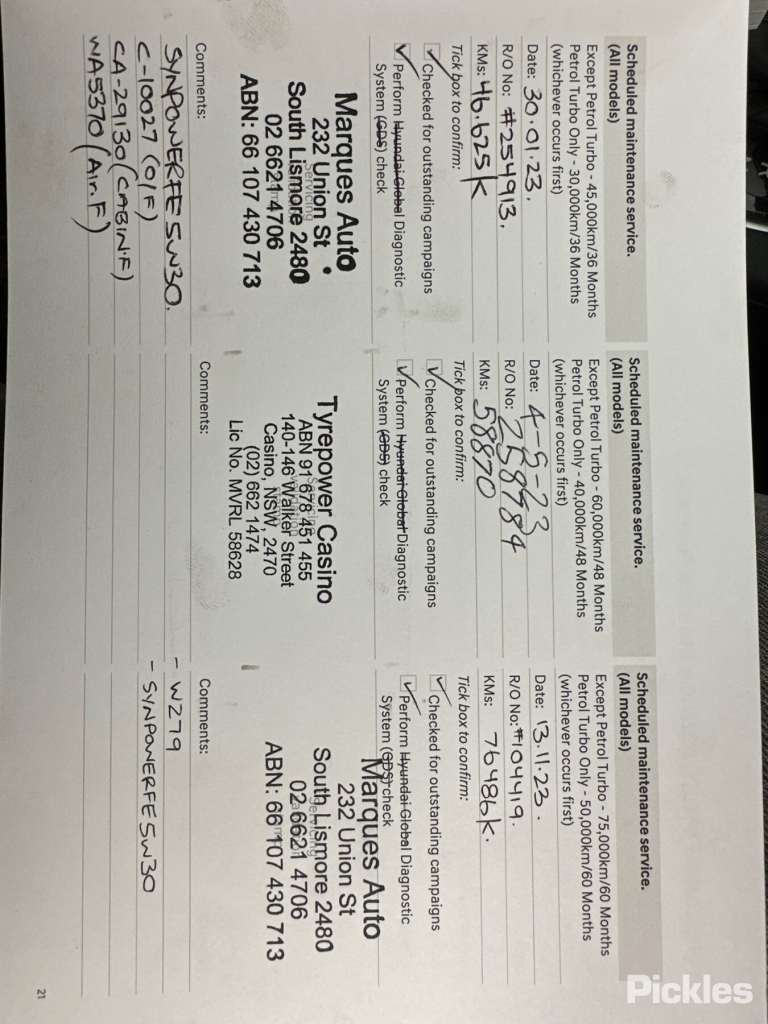 Scheduled maintenance service.
(All models)
Except Petrol Turbo - 45,000km/36 Months
Petrol Turbo Only - 30,000km/36 Months
(whichever occurs first)
Date: 30.01.23.
R/O No: #254913.
KMs: 46.625K
Tick box to confirm:
Checked for outstanding campaigns
Perform Hyundai Global Diagnostic
System (GDS) check
Marques Auto
232 Union St
South Lismore 2480
02 6621 4706
ABN: 66 107 430 713
Comments:
SYNPOWERFE 5W30.
C-10027 (O/F)
CA-29130 (CABIN.F)
WA5370 (Air.F)
Scheduled maintenance service.
(All models)
Except Petrol Turbo - 60,000km/48 Months
Petrol Turbo Only - 40,000km/48 Months
(whichever occurs first)
Date: 4-5-23
R/O No: 258984
KMs: 58870
Tick box to confirm:
Checked for outstanding campaigns
Perform Hyundai Global Diagnostic
System (GDS) check
Tyrepower Casino
ABN 91 678 451 455
140-146 Walker Street
Casino, NSW, 2470
(02) 662 1474
Lic No. MVRL 58628
Comments:
Scheduled maintenance service.
(All models)
Except Petrol Turbo - 75,000km/60 Months
Petrol Turbo Only - 50,000km/60 Months
(whichever occurs first)
Date: 13.11.23.
R/O No: #104419.
KMs: 76486K.
Tick box to confirm:
Checked for outstanding campaigns
Perform Hyundai Global Diagnostic
System (GDS) check
Marques Auto
232 Union St
South Lismore 2480
02 6621 4706
ABN: 66 107 430 713
Comments:
- WZ79
- SYNPOWERFE 5W30
21
Pickles